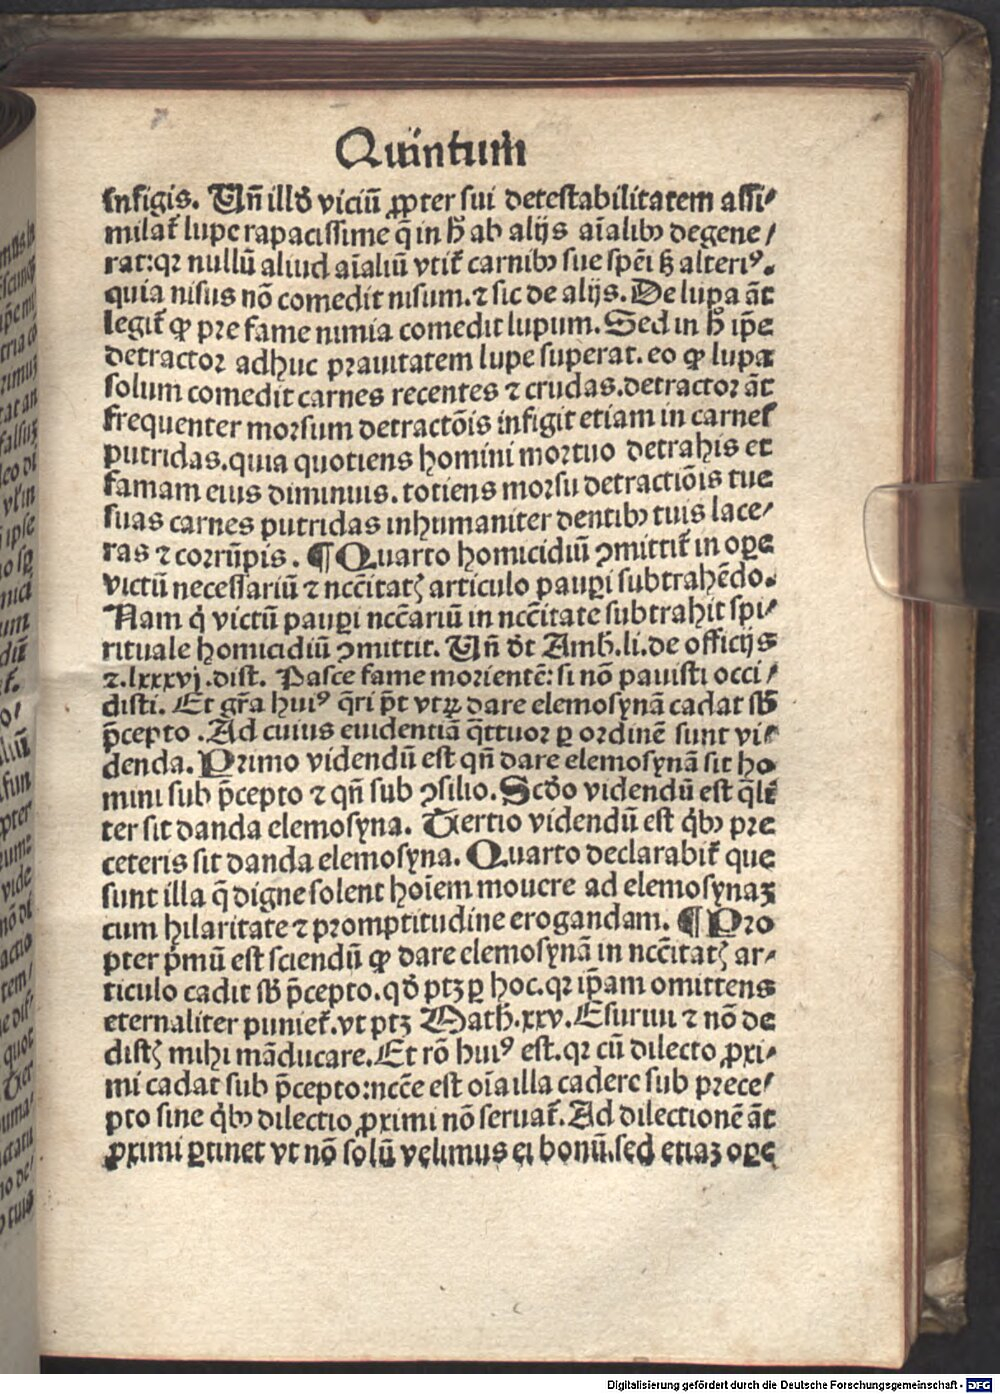 Quintum
infigis. Un̄ illḋ viciū ꝓpter sui detestabilitatem assi⸗
milat᷑ lupe rapacissime q̄ in h̄ ab alijs aīalibꝫ degene⸗
rat:qꝛ nullū aliud aīaliū vtit᷑ carnibꝫ sue spēi sꝫ alteriꝰ.
quia nisus nō comedit nisum.⁊ sic de alijs. De lupa āt
legit᷑ ꝙ pre fame nimia comedit lupum. Sed in h̄ ip̄e
detractor adhuc prauitatem lupe superat. eo ꝙ lupa
solum comedit carnes recentes ⁊ crudas.detractor āt
frequenter morsum detractōis infigit etiam in carnes
putridas.quia quotiens homini mortuo detrahis et
famam eius diminuis. totiens morsu detractiōis tue
suas carnes putridas inhumaniter dentibꝫ tuis lace⸗
ras ⁊ corrūpis. ¶ Quarto homicidiū ꝯmittit᷑ in oꝑe
victū necessariū ⁊ ncc̄itatꝭ articulo pauꝑi subtrahēdo.
Nam q̇ victū pauꝑi ncc̄ariū in ncc̄itate subtrahit spi⸗
rituale homicidiū ꝯmittit. Un̄ d̄t Amb̄.li.de officijs
⁊.lxxxvj.dist. Pasce fame morientē: si nō pauisti occi⸗
disti. Et gr̄a huiꝰ q̄ri p̄t vtꝝ dare elemosynā cadat sb̄
p̄cepto. Ad cuius euidentiā q̄ttuor ꝑ ordinē sunt vi⸗
denda. Primo videndū est qn̄ dare elemosynā sit ho
mini sub p̄cepto ⁊ qn̄ sub ꝯsilio. Scd̄o videndū est q̄lit᷑
ter sit danda elemosyna. Tertio videndū est q̇bꝫ pre
ceteris sit danda elemosyna. Quarto declarabit᷑ que
sunt illa q̄ digne solent hoīem mouere ad elemosynaꝫ
cum hilaritate ⁊ promptitudine erogandam. ¶ Pro
pter p̄mū est sciendū ꝙ dare elemosynā in ncc̄itatꝭ ar⸗
ticulo cadit sb̄ p̄cepto.qḋ ptꝫ ꝑ hoc.qꝛ ip̄am omittens
eternaliter puniet᷑.vt ptꝫ Math̄.xxv. Esuriui ⁊ nō de
distꝭ mihi māducare. Et rō huiꝰ est.qꝛ cū dilectio ꝓxi⸗
mi cadat sub p̄cepto:nccē est oīa illa cadere sub prece⸗
pto sine q̇bꝫ dilectio ꝓximi nō seruat᷑. Ad dilectionē āt
ꝓximi ꝑtinet vt nō solū velimus ei bonū.sed etiaꝫ oꝑe
Digitalisierung gefördert durch die Deutsche Forschungsgemeinschaft - DFG